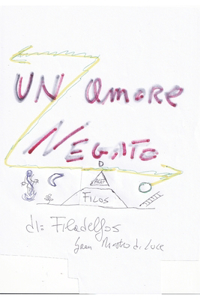 UN amore
NEGATO
D
FILOS
di: Filadelfos
di Luce